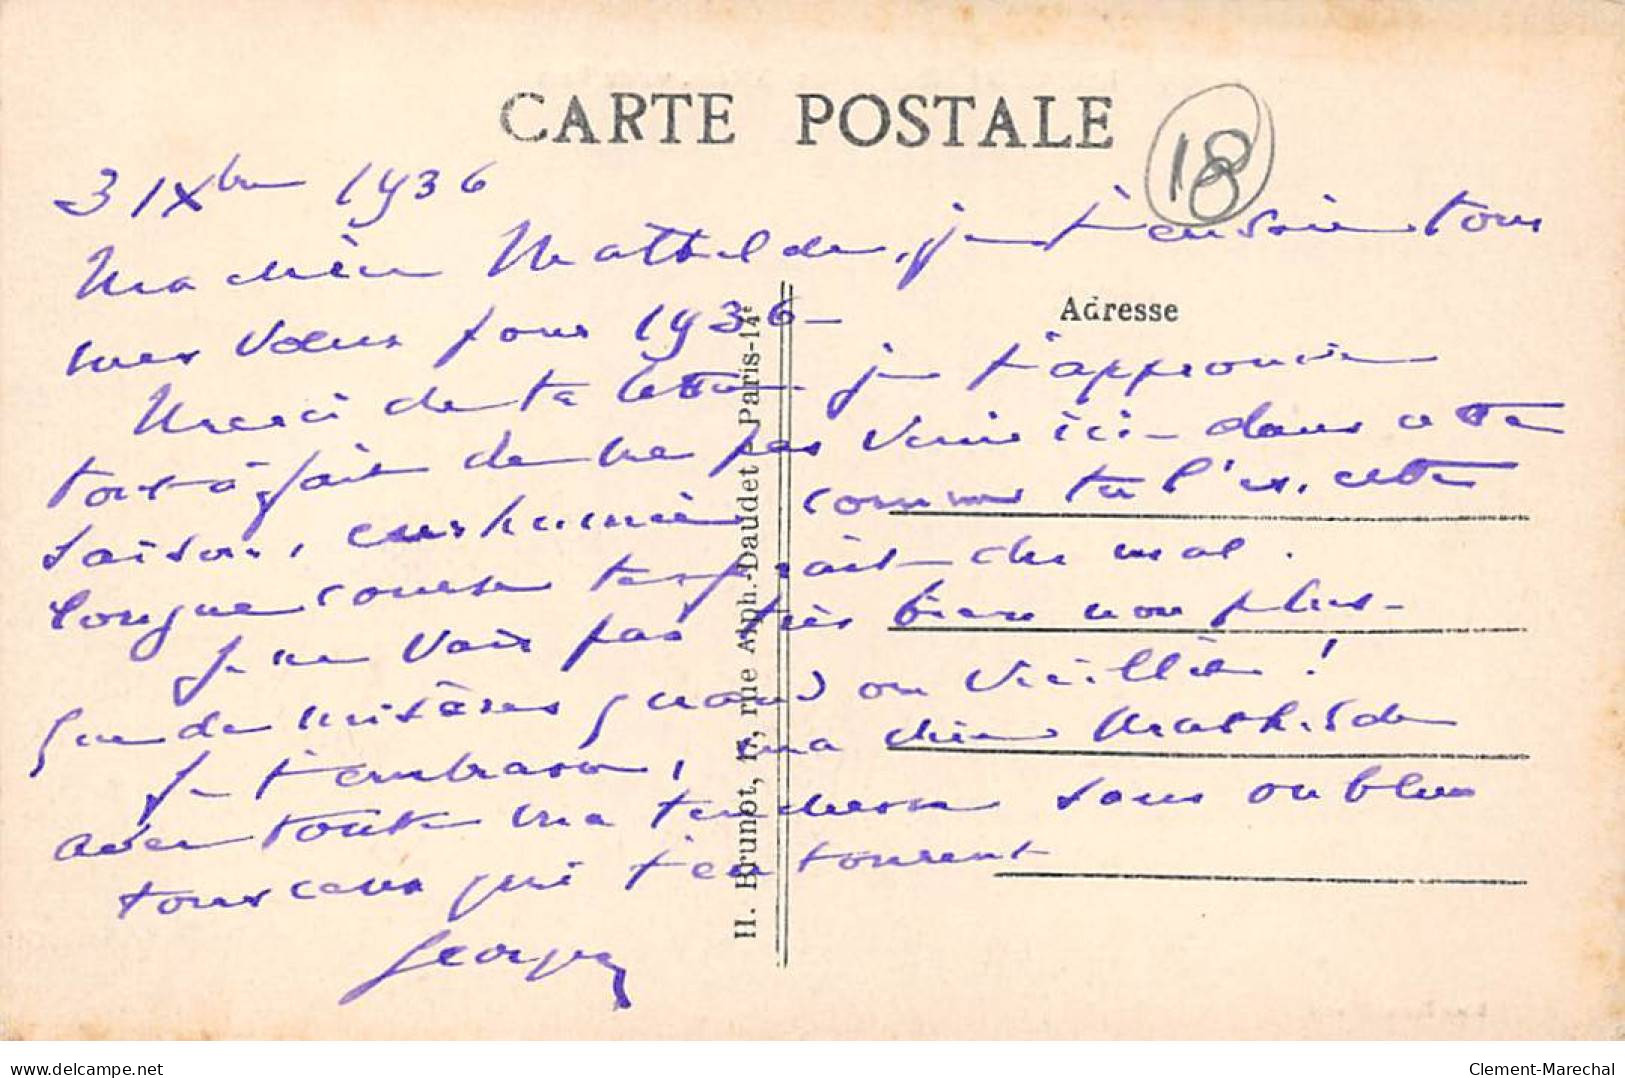 CARTE POSTALE
18
31 Xbre 1936
Ma chère Mathilde, je t'envoie tous
Adresse
mes vœux pour 1936 –
Merci de ta lettre. je t'approuve
tout à fait de ne pas venir ici – dans cette
saison, enrhumée comme tu l'es, cette
longue course te ferait du mal.
Je ne vais pas très bien non plus –
que de misères quand on vieillit !
Je t'embrasse, ma chère Mathilde
avec toute ma tendresse sans oublier
tous ceux qui t'entourent
Georges
H. Brunot, 17, rue Alph.-Daudet - Paris-14e
delcampe.net
Clement-Marechal